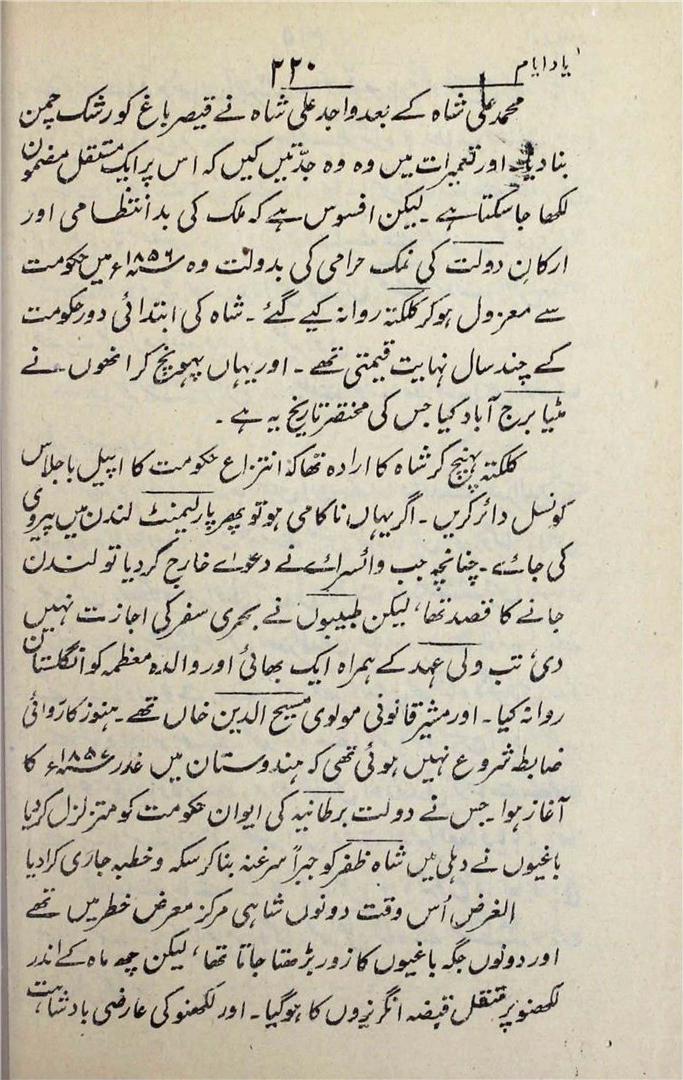 یاد ایام ۲۲۰
محمد علی شاہ کے بعد واجد علی شاہ نے قیصر باغ کو رشک چمن
بنا دیا۔ اور تعمیرات میں وہ وہ جدّتیں کیں کہ اس پر ایک مستقل مضمون
لکھا جا سکتا ہے۔ لیکن افسوس ہے کہ ملک کی بد انتظامی اور
ارکانِ دولت کی نمک حرامی کی بدولت وہ ۱۸۵۶ء میں حکومت
سے معزول ہو کر کلکتہ روانہ کیے گئے۔ شاہ کی ابتدائی دور حکومت
کے چند سال نہایت قیمتی تھے۔ اور یہاں پہونچ کر انھوں نے
مٹیا برج آباد کیا جس کی مختصر تاریخ یہ ہے۔
کلکتہ پہنچ کر شاہ کا ارادہ تھا کہ انتزاع حکومت کا اپیل باجلاس
کونسل دائر کریں۔ اگر یہاں ناکامی ہو تو پھر پارلیمنٹ لندن میں پیروی
کی جائے۔ چنانچہ جب وائسرائے نے دعوے خارج کر دیا تو لندن
جانے کا قصد تھا، لیکن طبیبوں نے بحری سفر کی اجازت نہیں
دی، تب ولی عہد کے ہمراہ ایک بھائی اور والدہ معظمہ کو انگلستان
روانہ کیا۔ اور مشیر قانونی مولوی مسیح الدین خاں تھے۔ ہنوز کارروائی
ضابطہ شروع نہیں ہوئی تھی کہ ہندوستان میں غدر ۱۸۵۷ء کا
آغاز ہوا۔ جس نے دولت برطانیہ کی ایوان حکومت کو متزلزل کر دیا
باغیوں نے دہلی میں شاہ ظفر کو جبراً سرغنہ بنا کر سکہ و خطبہ جاری کرا دیا
الغرض اُس وقت دونوں شاہی مرکز معرض خطر میں تھے
اور دونوں جگہ باغیوں کا زور بڑھتا جاتا تھا، لیکن چھ ماہ کے اندر
لکھنؤ پر مستقل قبضہ انگریزوں کا ہو گیا۔ اور لکھنو کی عارضی بادشاہت